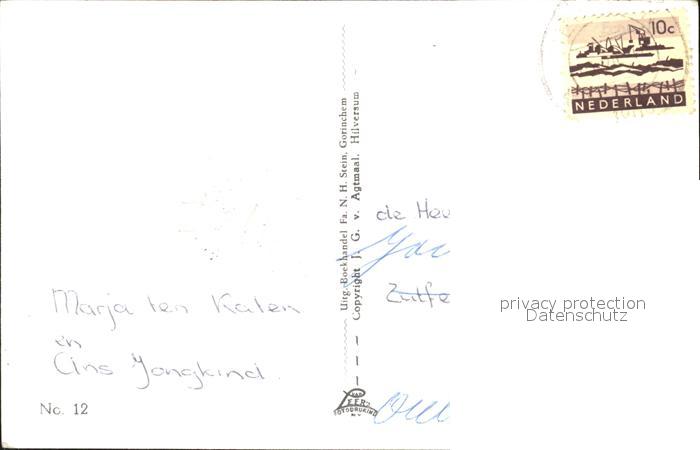 10c
NEDERLAND
Uitg. Boekhandel Fa. N. H. Stein, Gorinchem
Copyright J. G. v. Agtmaal. Hilversum
de Hee
Zutfe
privacy protection
Datenschutz
Marja ten Katen
en
Ans Jongkind
No. 12
VAN
LEER'S
FOTODRUKIND
N.V.